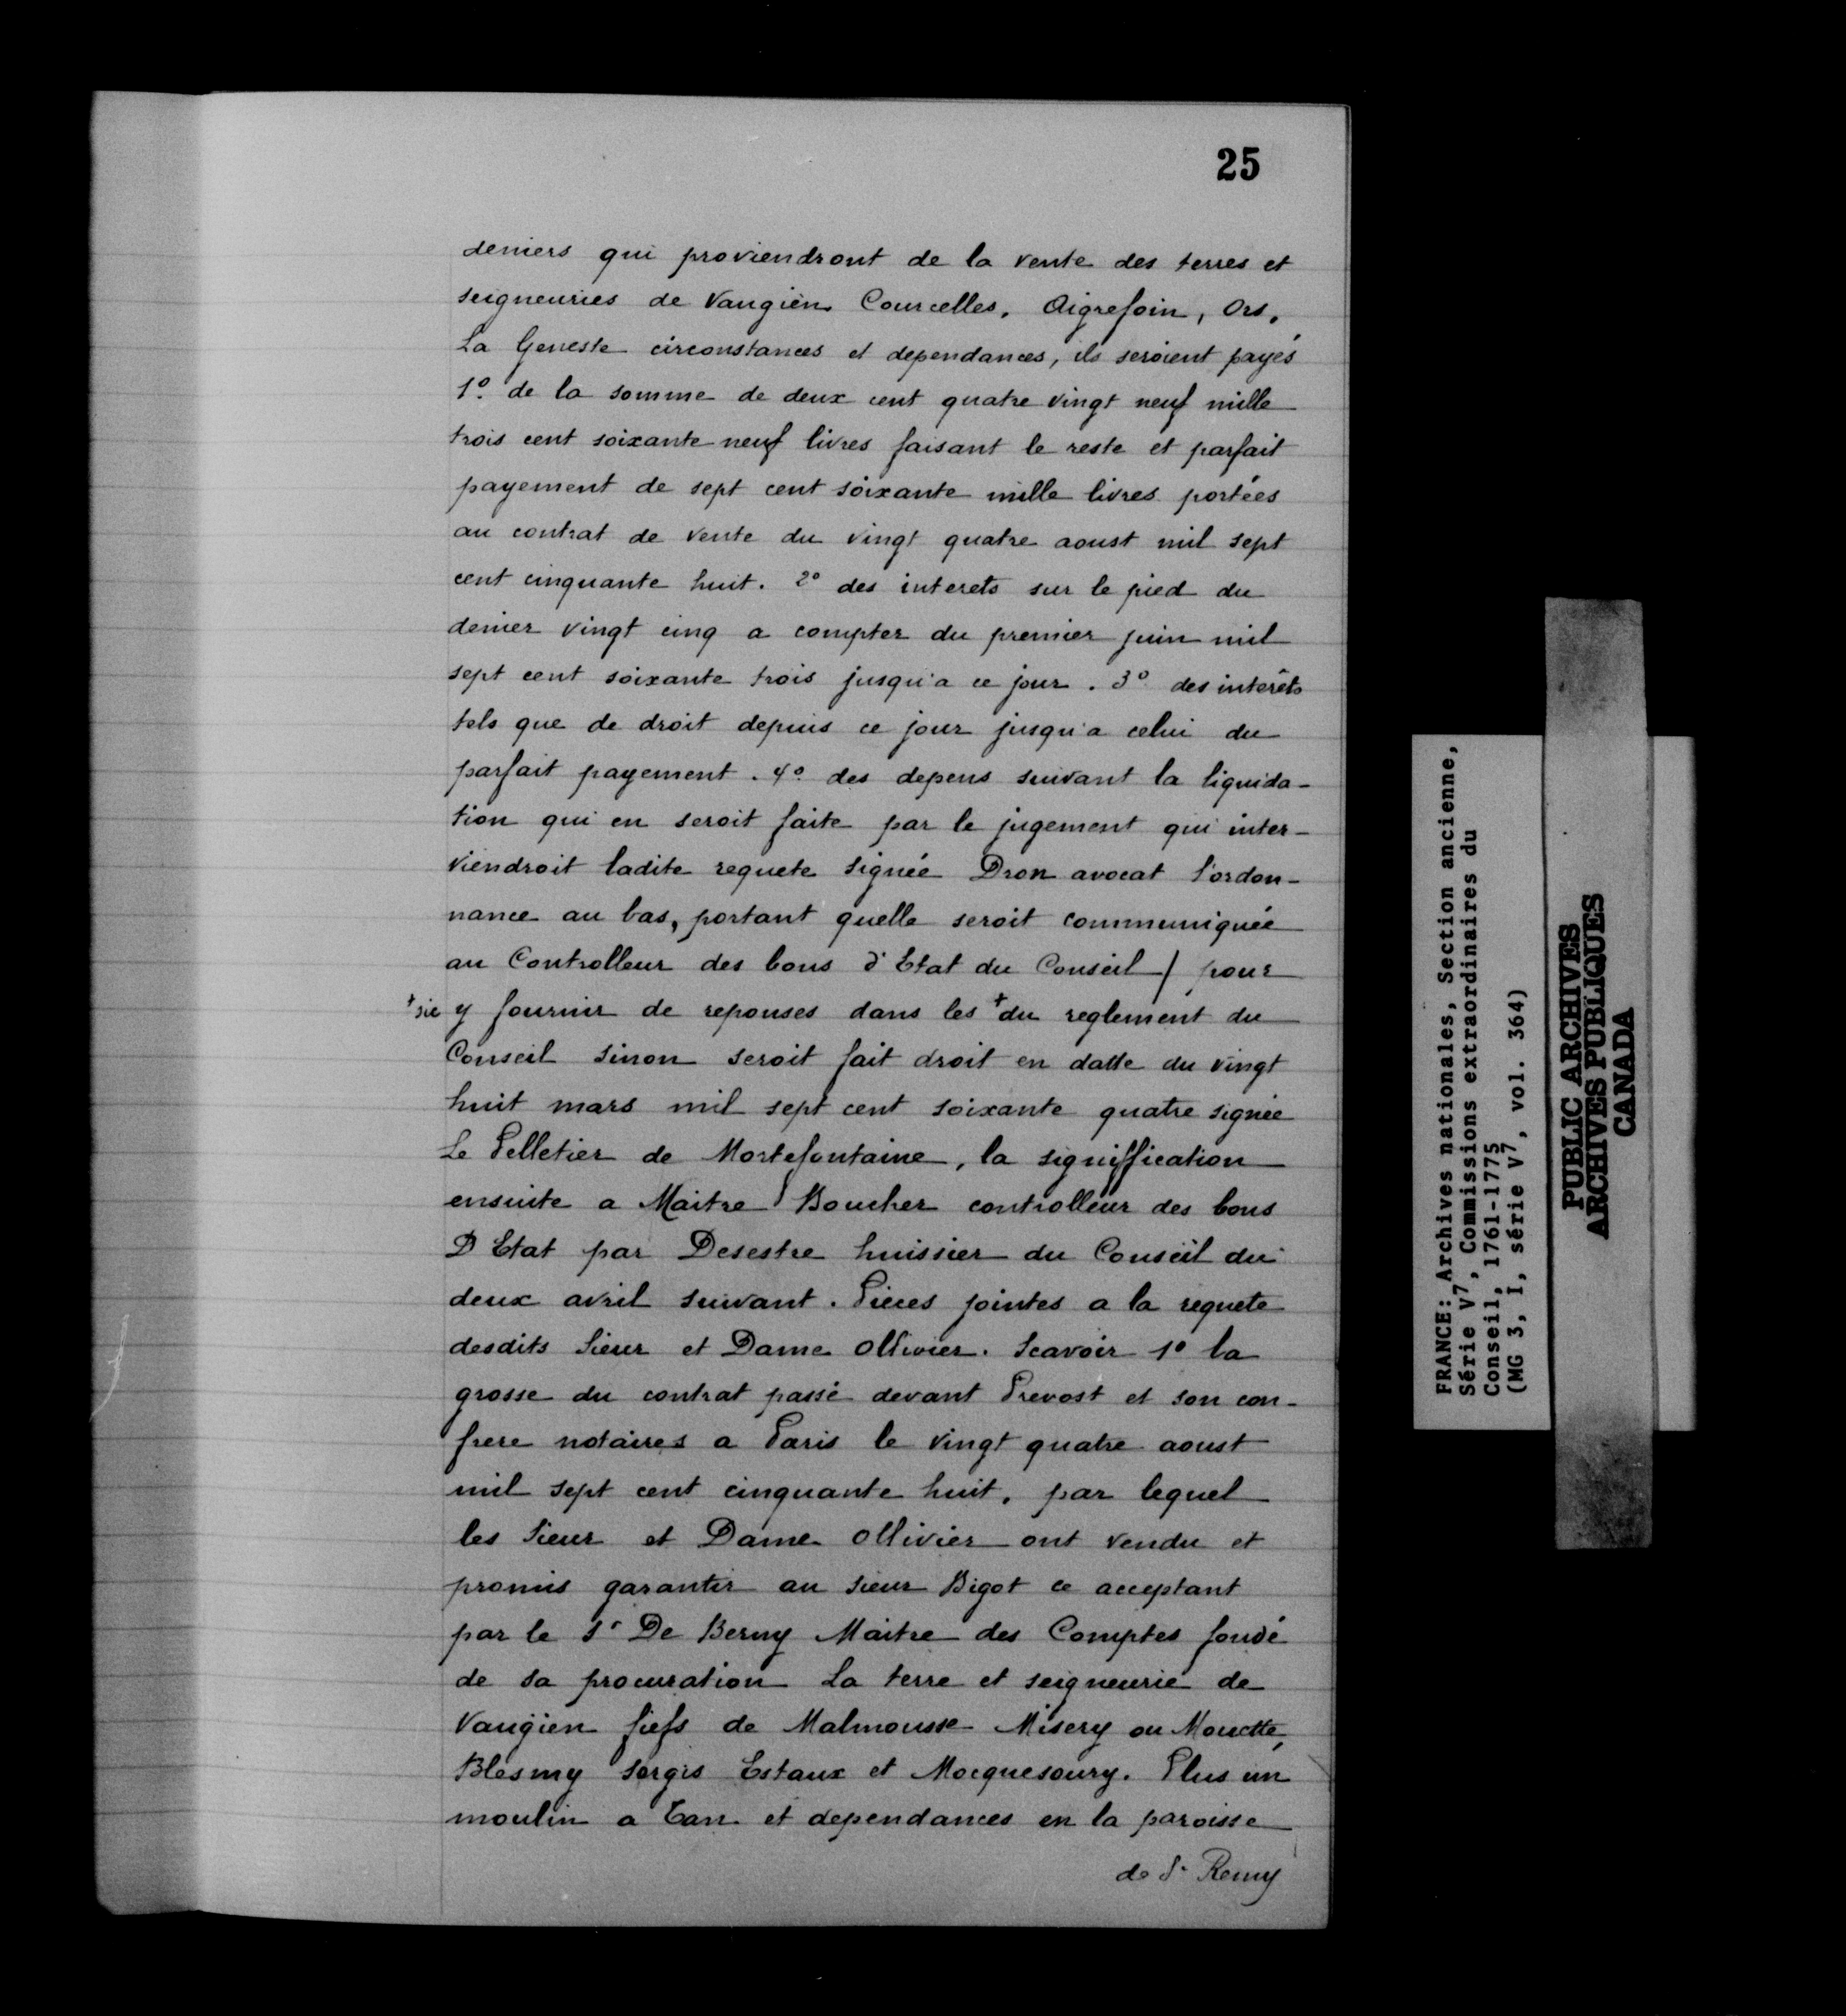 25
deniers qui proviendront de la vente des terres et
seigneuries de Vaugien Courcelles, Aigrefoin, Ors,
La Geneste circonstances et dependances, ils seroient payés
1º. de la somme de deux cent quatre vingt neuf mille
trois cent soixante neuf livres faisant le reste et parfait
payement de sept cent soixante mille livres portées
au contrat de vente du vingt quatre aoust mil sept
cent cinquante huit. 2º des interets sur le pied du
denier vingt cinq a compter du premier juin mil
sept cent soixante trois jusqu'a ce jour. 3º des interêts
tels que de droit depuis ce jour jusqu'a celui du
parfait payement. 4º. des depens suivant la liquida-
tion qui en seroit faite par le jugement qui inter-
viendroit ladite requete signée Dron avocat l'ordon-
nance au bas, portant quelle seroit communiquée
au Controlleur des bons d'Etat du Conseil / pour
+sic y fournir de reponses dans les + du reglement du
Conseil sinon seroit fait droit en datte du vingt
huit mars mil sept cent soixante quatre signée
Le Pelletier de Mortefontaine, la signiffication
ensuite a Maitre Boucher controlleur des bons
D Etat par Desestre huissier du Conseil du
deux avril suivant. Pieces jointes a la requete
desdits Sieur et Dame Ollivier. Scavoir 1º la
grosse du contrat passé devant Prevost et son con-
frere notaires a Paris le vingt quatre aoust
mil sept cent cinquante huit, par lequel
les Sieur et Dame Ollivier ont vendu et
promis garantir au Sieur Bigot ce acceptant
par le Sr De Berny Maitre des Comptes fondé
de sa procuration La terre et seigneurie de
Vaugien fiefs de Malmousse Misery ou Mouette,
Blesmy Sorgis Estaux et Mocquesoury. Plus un
moulin a Tan et dependances en la paroisse
de St Remy
FRANCE: Archives nationales, Section ancienne,
Série V7, Commissions extraordinaires du
Conseil, 1761-1775
(MG 3, I, série V7, vol. 364)
PUBLIC ARCHIVES
ARCHIVES PUBLIQUES
CANADA